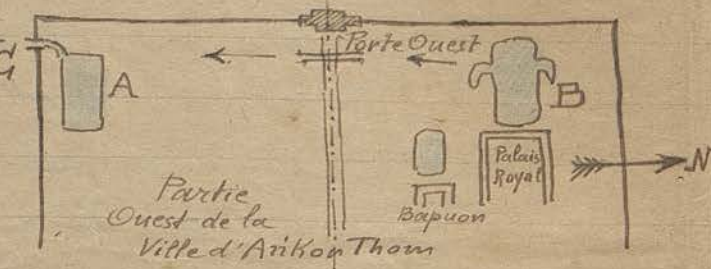 C
A
Porte Ouest
B
Palais
Royal
N
Bapuon
Partie
Ouest de la
Ville d'Ankor Thom